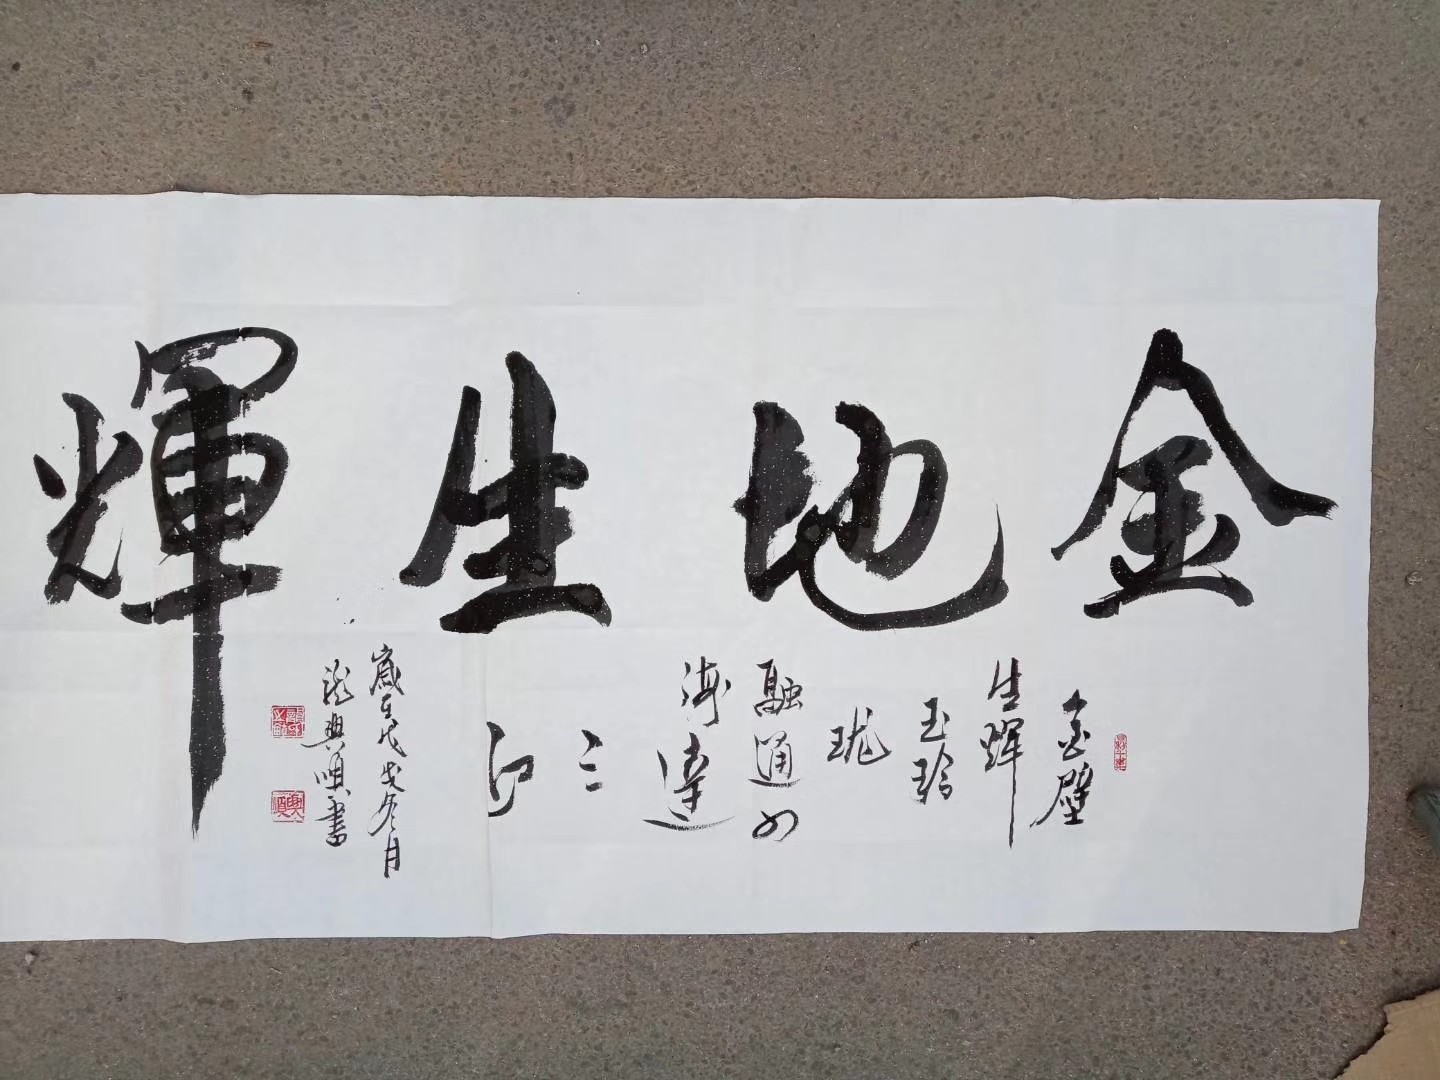 金地生輝
金壁
生輝
玉玲
珑
融通四
海達
三
江
歲在戊戌冬月
龍興順書